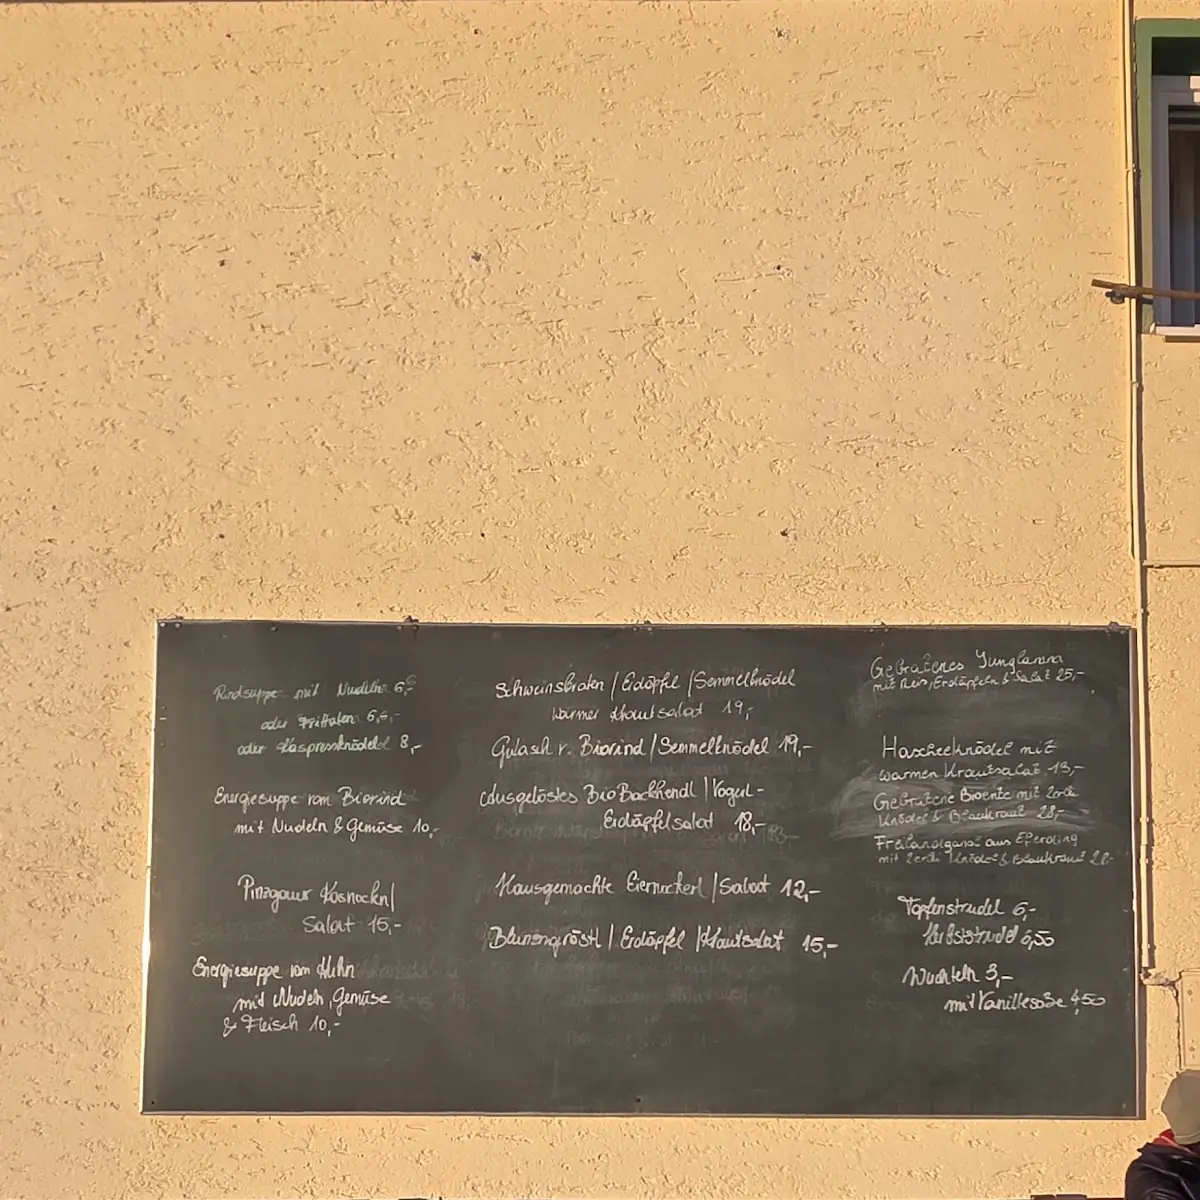 Rindsuppe mit Nudeln 6,-
oder Frittaten 6,-
oder Kaspressknödel 8,-
Energiesuppe vom Biorind
mit Nudeln & Gemüse 10,-
Pinzgauer Kasnockn/
Salat 15,-
Energiesuppe vom Huhn
mit Nudeln, Gemüse
& Fleisch 10,-
Schweinsbraten / Erdäpfel / Semmelknödel
warmer Krautsalat 19,-
Gulasch v. Biorind / Semmelknödel 19,-
Ausgelöstes BioBackhendl / Vogerl-
Erdäpfelsalat 18,-
Hausgemachte Eiernockerl / Salat 12,-
Blunzngröstl / Erdäpfel / Krautsalat 15,-
Gebratenes Junglamm
mit Erdäpfeln & Salat 25,-
Hascheeknödel mit
warmen Krautsalat 13,-
Gebratene Bioente mit
Knödel & Blaukraut 28,-
Freilandgansl aus Eferding
mit Knödel & Blaukraut 28-
Topfenstrudel 6,-
6,50
Wuchteln 3,-
mit Vanillesoße 4,50